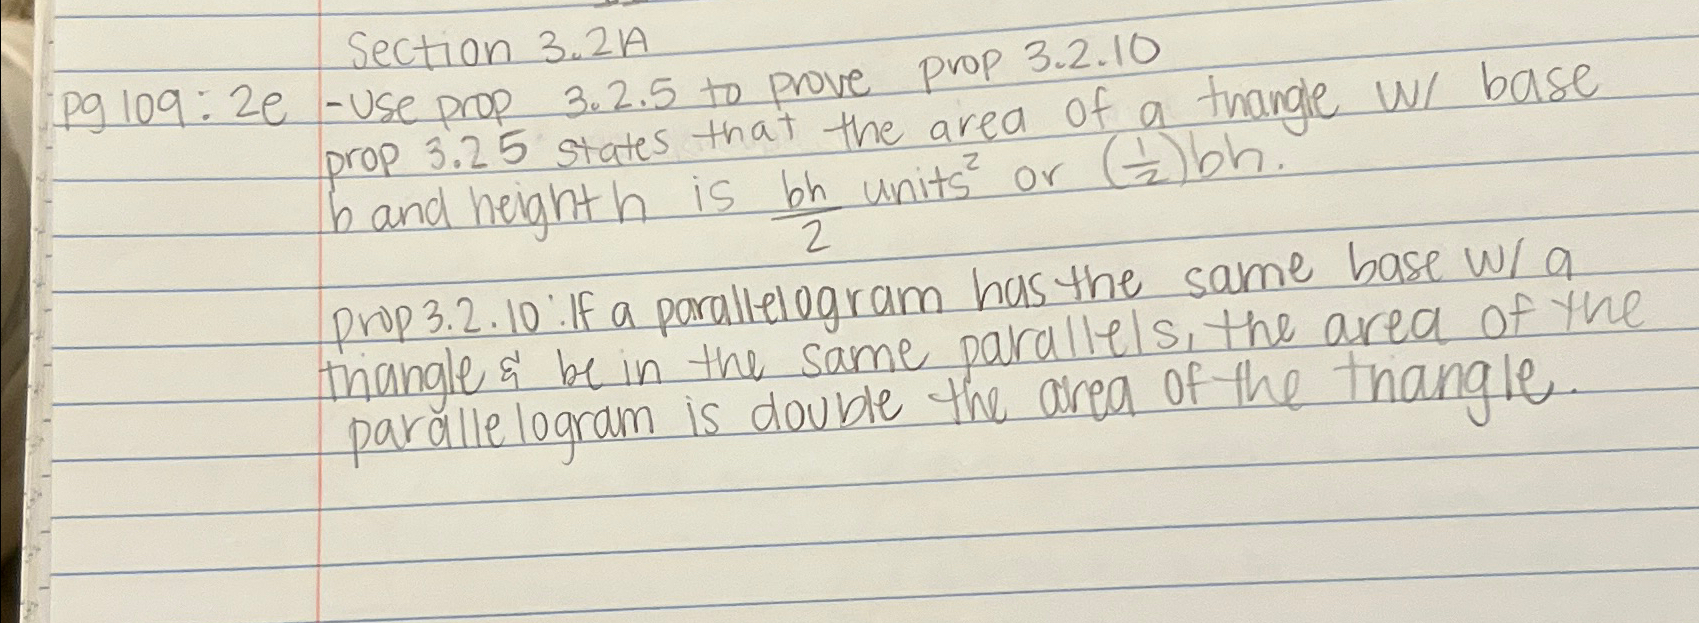 Section 3.2A
pg 109: 2e - Use prop 3.2.5 to prove prop 3.2.10
prop 3.25 states that the area of a triangle w/ base
b and height h is bh/2 units² or (1/2)bh.
prop 3.2.10: If a parallelogram has the same base w/ a
triangle & be in the same parallels, the area of the
parallelogram is double the area of the triangle.